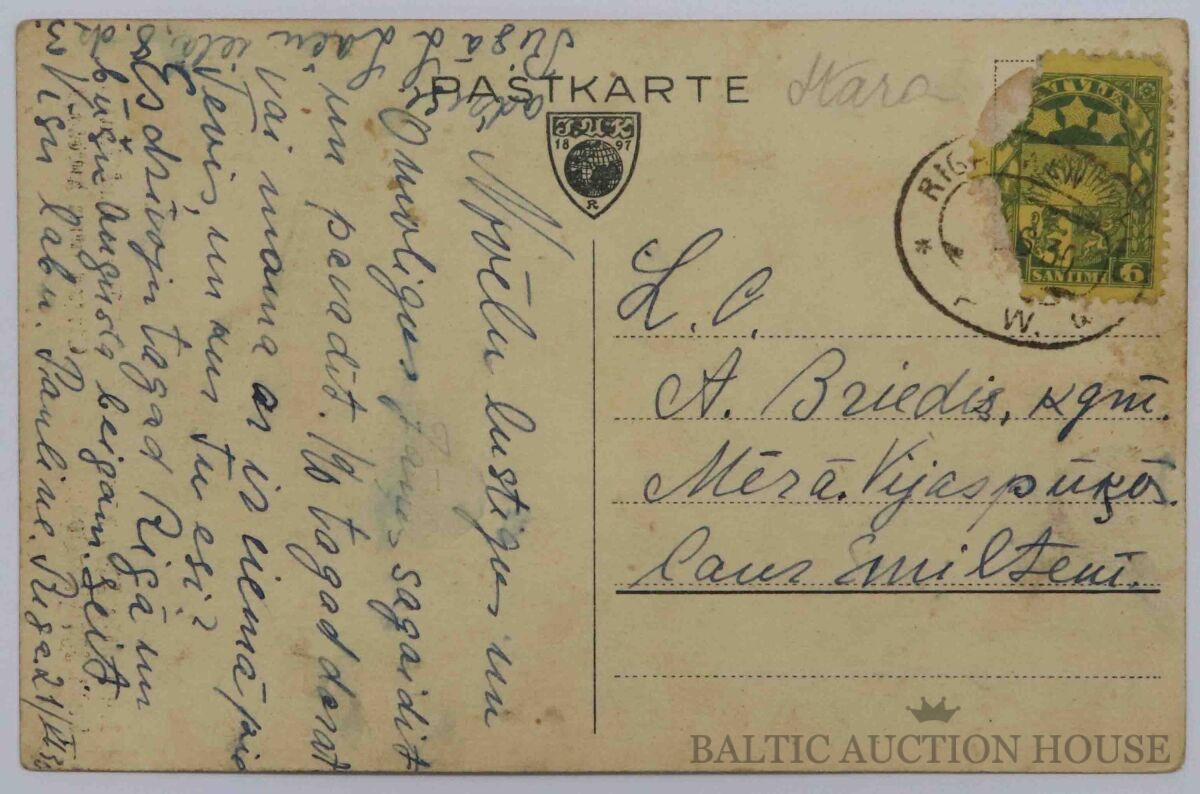 PASTKARTE
18 97
R
LATVIJA
SANTIMI 6
RIGA
L. C.
A. Briedis, kgm.
Mērā. Vijaspūķos.
caur Smilteni.
Novēlu lustīgus un
omulīgus Jāņus sagaidīt
un pavadīt. Ko tagad darat
vai mana ar ir vienā pie
Tevis, un kur Tu esi?
Es dzīvoju tagad Rīgā un
būšu Augusta beigām šeit
Visu labu. Pauline. Riga 21/VI
Rīgā
BALTIC AUCTION HOUSE